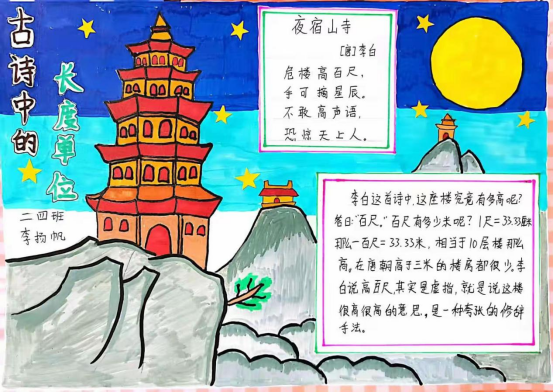 古诗中的
长度单位
二四班
李扬帆
夜宿山寺
[唐]李白
危楼高百尺，
手可摘星辰。
不敢高声语，
恐惊天上人。
李白这首诗中，这座楼究竟有多高呢？
答曰“百尺。”百尺有多少米呢？1尺=33.33厘米
那么一百尺=33.33米，相当于10层楼那么
高。在唐朝高于三米的楼房都很少。李
白说高百尺，其实是虚指，就是说这楼
很高很高的意思，是一种夸张的修辞
手法。